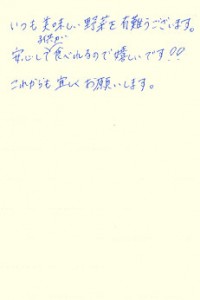 いつも美味しい野菜を有難うございます。
安心して食べれるので嬉しいです!!
これからも宜しくお願いします。